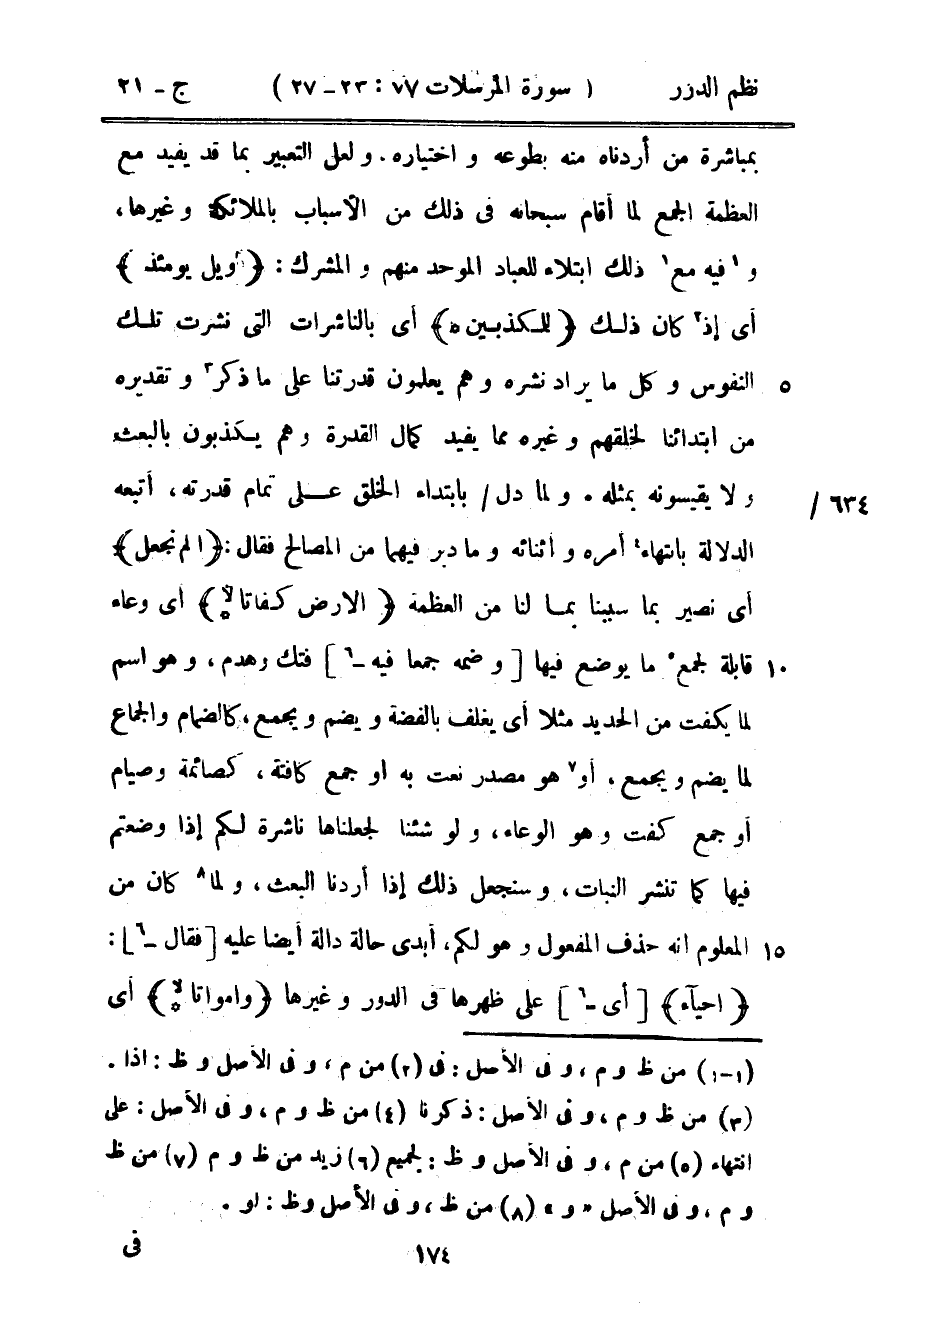 نظم الدرر ( سورة المرسلات ٧٧ : ٢٣ - ٢٧ ) ج - ٢١
بمباشرة من أردناه منه بطوعه و اختياره . و لعل التعبير بما قد يفيد مع
العظمة الجمع لما أقام سبحانه فى ذلك من الأسباب بالملائكة و غيرها ،
و ١فيه مع١ ذلك ابتلاء للعباد الموحد منهم و المشرك : ﴿ ويل يومئذ ﴾
أى إذ٢ كان ذلك ﴿ للمكذبين ٥﴾ أى بالناشرات التى نشرت تلك
٥ النفوس و كل ما يراد نشره و هم يعلمون قدرتنا على ما ذكر٣ و تقديره
من ابتدائنا لخلقهم و غيره مما يفيد كمال القدرة و هم يكذبون بالبعث
٦٣٤ / و لا يقيسونه بمثله . و لما دل / بابتداء الخلق على تمام قدرته ، أتبعه
الدلالة بانتهاء٤ أمره و أثنائه و ما دبر فيهما من المصالح فقال : ﴿ الم نجعل ﴾
أى نصير بما سببنا بما لنا من العظمة ﴿ الارض كفاتا لا ﴾ أى وعاء
١٠ قابلة لجمع٥ ما يوضع فيها [ و ضمه جمعا فيه -٦ ] فتك و هدم ، و هو اسم
لما يكفت من الحديد مثلا أى يغلف بالفضة و يضم و يجمع ، كالضمام والجماع
لما يضم و يجمع ، أو٧ هو مصدر نعت به او جمع كافتة ، كصائمة وصيام
أو جمع كفت و هو الوعاء ، و لو شئنا لجعلناها ناشرة لكم إذا وضعتم
فيها كما تنشر النبات ، و سنجعل ذلك إذا أردنا البعث ، و لما٨ كان من
١٥ المعلوم انه حذف المفعول و هو لكم ، أبدى حالة دالة أيضا عليه [ فقال -٦ ] :
﴿ احيآء ﴾ [ أى -٦ ] على ظهرها فى الدور و غيرها ﴿ وامواتا لا ﴾ أى
(١-١) من ظ و م ، و فى الأصل : فى (٢) من م ، و فى الأصل و ظ : اذا .
(٣) من ظ و م ، و فى الأصل : ذكرنا (٤) من ظ و م ، و فى الأصل : على
انتهاء (٥) من م ، و فى الأصل و ظ : لجميع (٦) زيد من ظ و م (٧) من ظ
و م ، و فى الأصل « و » (٨) من ظ ، و فى الأصل وظ : او .
١٧٤ فى